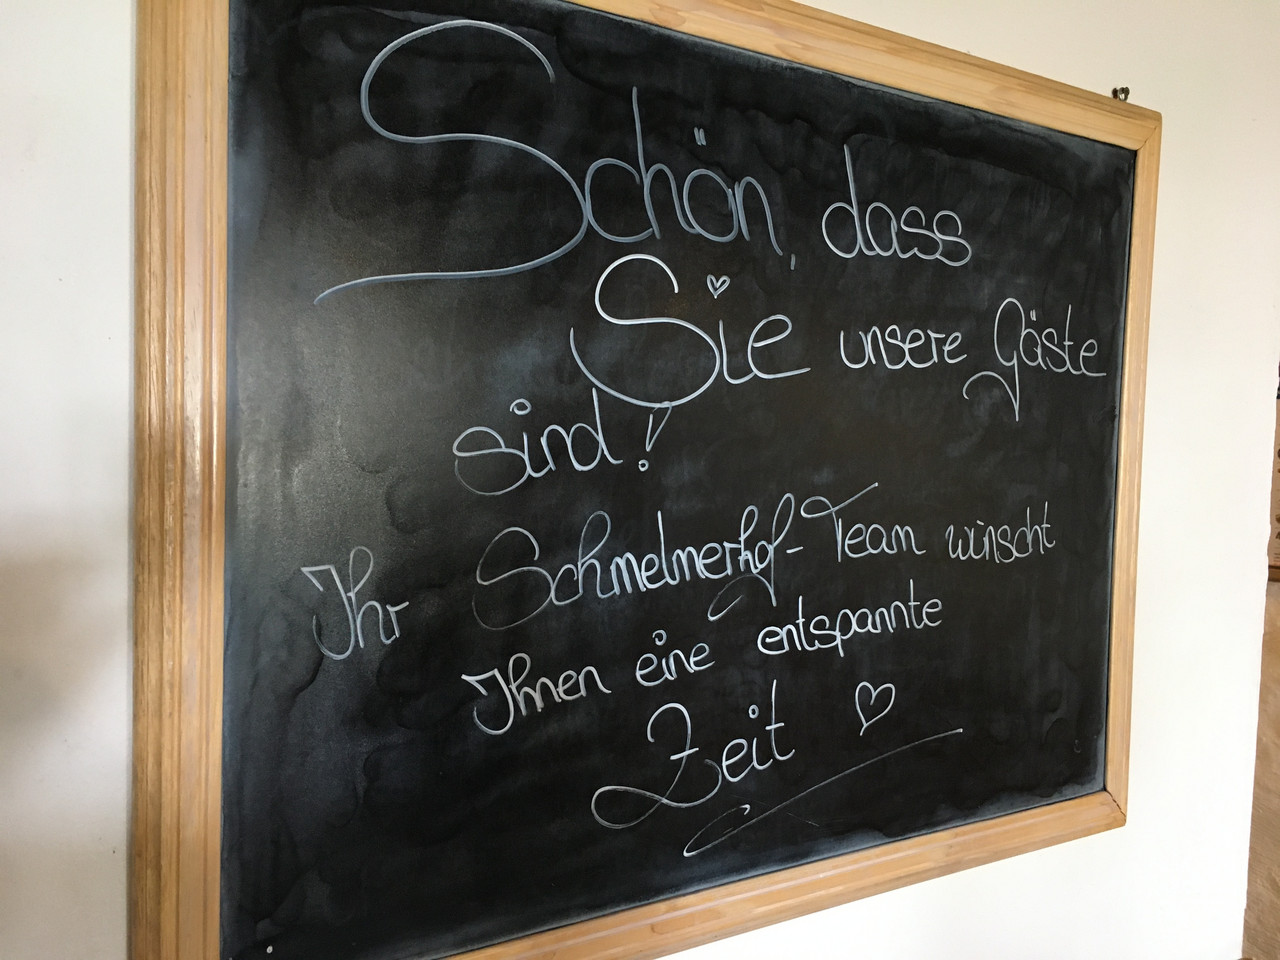 Schön, dass
Sie unsere Gäste
sind!
Ihr Schmelmerhof-Team wünscht
Ihnen eine entspannte
Zeit ♡